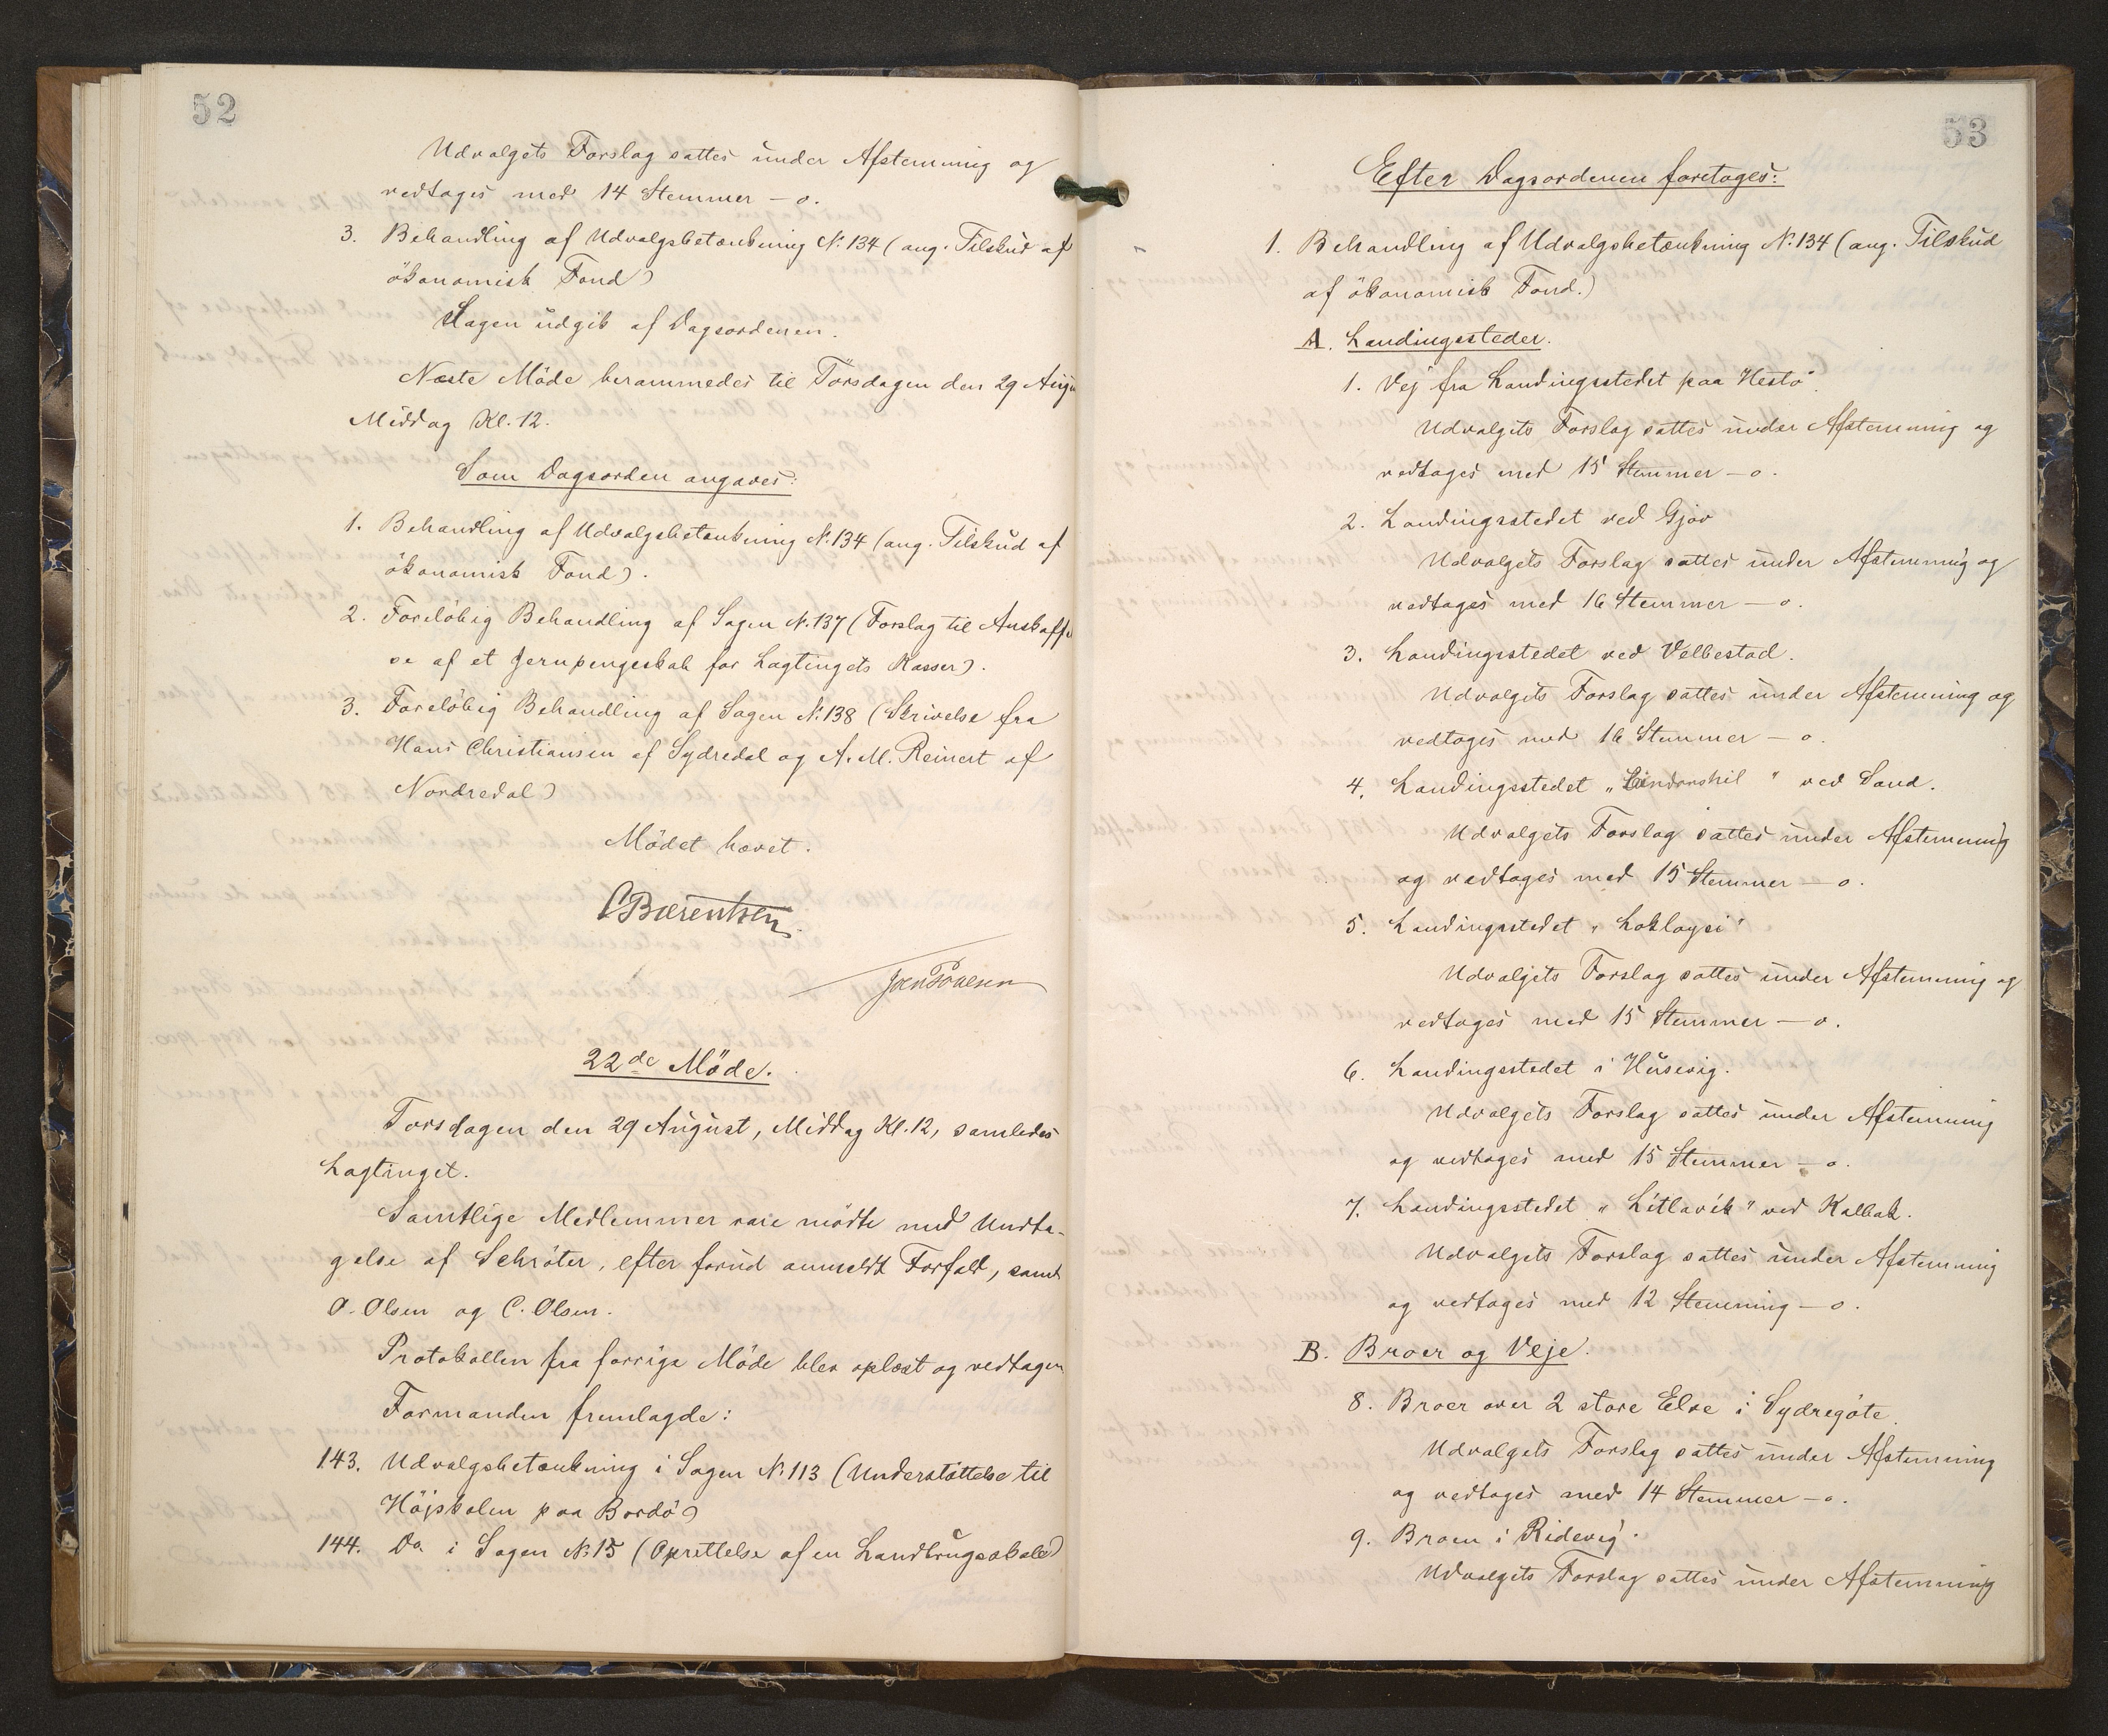 52
Udvalgets Forslag sattes under Afstemning og
vedtages med 14 Stemmer – o.
3. Behandling af Udvalgsbetænkning N. 134 (ang. Tilskud af
ökonomisk Fond)
Sagen udgik af Dagsordenen.
Næste Möde berammedes til Torsdagen den 29 Augu
Middag Kl. 12.
Som Dagsorden angaves:
1. Behandling af Udvalgsbetænkning N. 134 (ang. Tilskud af
ökonomisk Fond).
2. Forelöbig Behandling af Sagen N. 137 (Forslag til Anskaffe
se af et Jernpengeskab for Lagtingets Kasser).
3. Forelöbig Behandling af Sagen N. 138 (Skrivelse fra
Hans Christiansen af Sydredal og A. M. Reinert af
Nordredal)
Mödet hævet.
C Bærentsen
Joen Poulsen
22de Möde.
Torsdagen den 29 August, Middag Kl. 12, samledes
Lagtinget.
Samtlige Medlemmer vare mödte med Undta-
gelse af Schröter, efter forud anmeldt Forfald, samt
O. Olsen og C. Olsen.
Protokollen fra forrige Möde blev oplæst og vedtagen
Formanden fremlagde:
143. Udvalgsbetænkning i Sagen N. 113 (Understöttelse til
Höjskolen paa Bordö)
144. Do. i Sagen N. 15 (Oprettelse af en Landbrugsskole)
53
Efter Dagsordenen foretoges:
1. Behandling af Udvalgsbetænkning N. 134 (ang. Tilskud
af ökonomisk Fond.)
A. Landingssteder.
1. Vej fra Landingsstedet paa Hestö.
Udvalgets Forslag sattes under Afstemning og
vedtages med 15 Stemmer – o.
2. Landingsstedet ved Gjov
Udvalgets Forslag sattes under Afstemning og
vedtages med 16 Stemmer – o.
3. Landingsstedet ved Velbestad.
Udvalgets Forslag sattes under Afstemning og
vedtages med 16 Stemmer – o.
4. Landingsstedet „ " ved Sand.
Udvalgets Forslag sattes under Afstemning
og vedtages med 15 Stemmer – o.
5. Landingsstedet „
Udvalgets Forslag sattes under Afstemning og
vedtages med 15 Stemmer – o.
6. Landingsstedet i Husevig.
Udvalgets Forslag sattes under Afstemning
og vedtages med 15 Stemmer – o.
7. Landingsstedet „Lítlavík" ved Kalbak.
Udvalgets Forslag sattes under Afstemning
og vedtages med 12 Stemning – o.
B. Broer og Veje.
8. Broer over 2 store Elve i Sydregöte.
Udvalgets Forslag sattes under Afstemning
og vedtages med 14 Stemmer – o.
9. Broen i Ridevig.
Udvalgets Forslag sattes under Afstemning